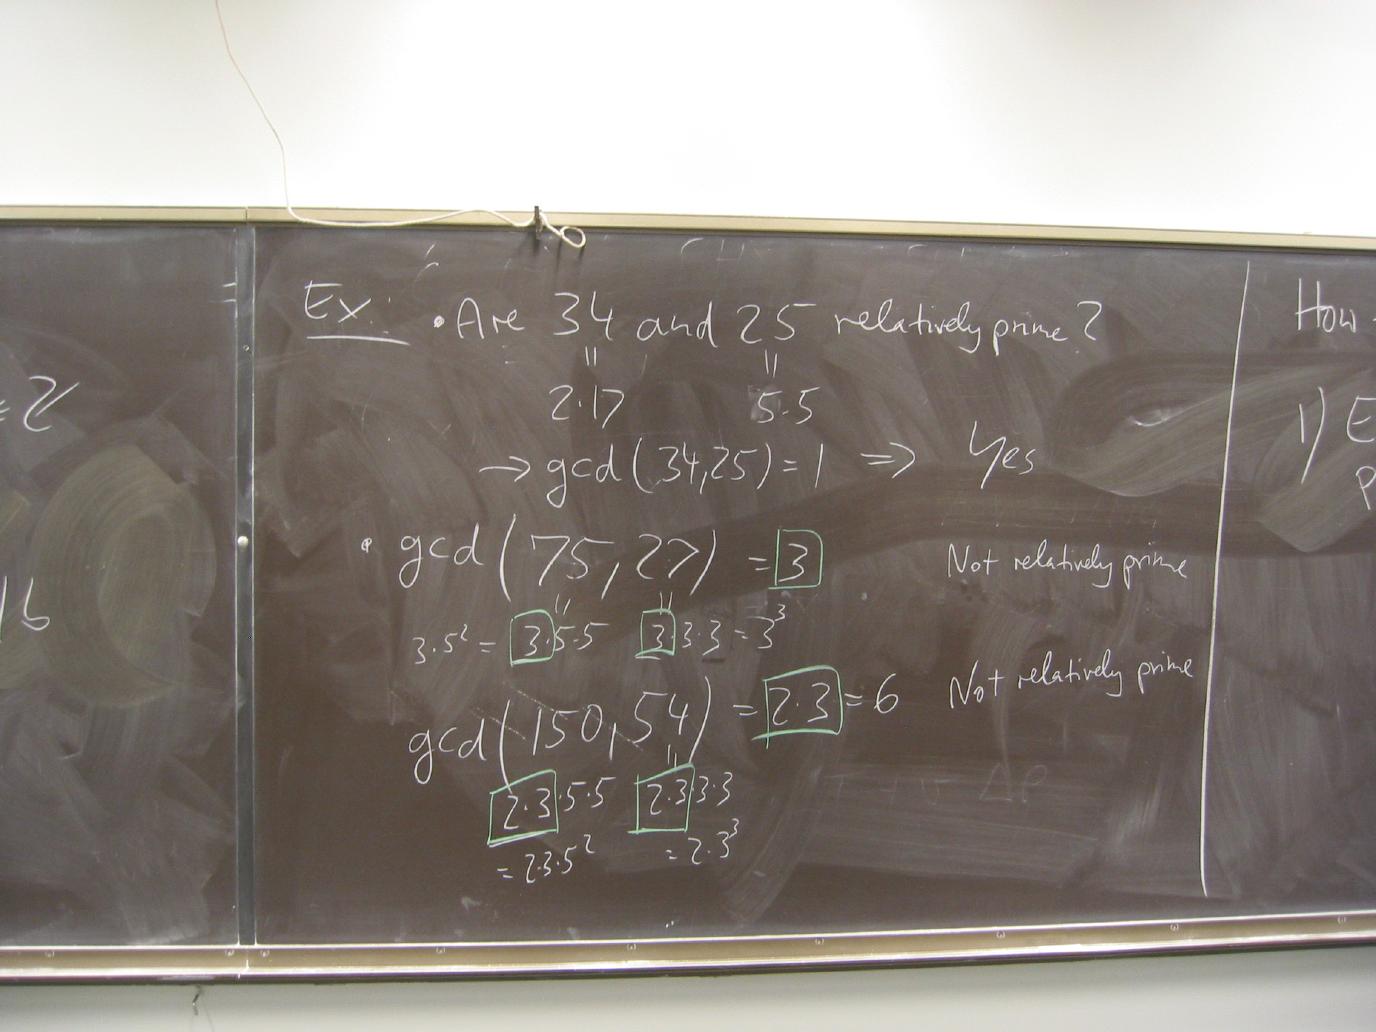 = 2
16
Ex: • Are 34 and 25 relatively prime?
= =
2·17 5·5
→ gcd(34,25) = 1 ⇒ Yes
• gcd(75,27) = 3 Not relatively prime
= =
3·5² = 3·5·5 3·3·3 = 3³
gcd(150,54) = 2·3 = 6 Not relatively prime
=
2·3·5·5 2·3·3·3
= 2·3·5² = 2·3³
How
1) E
P